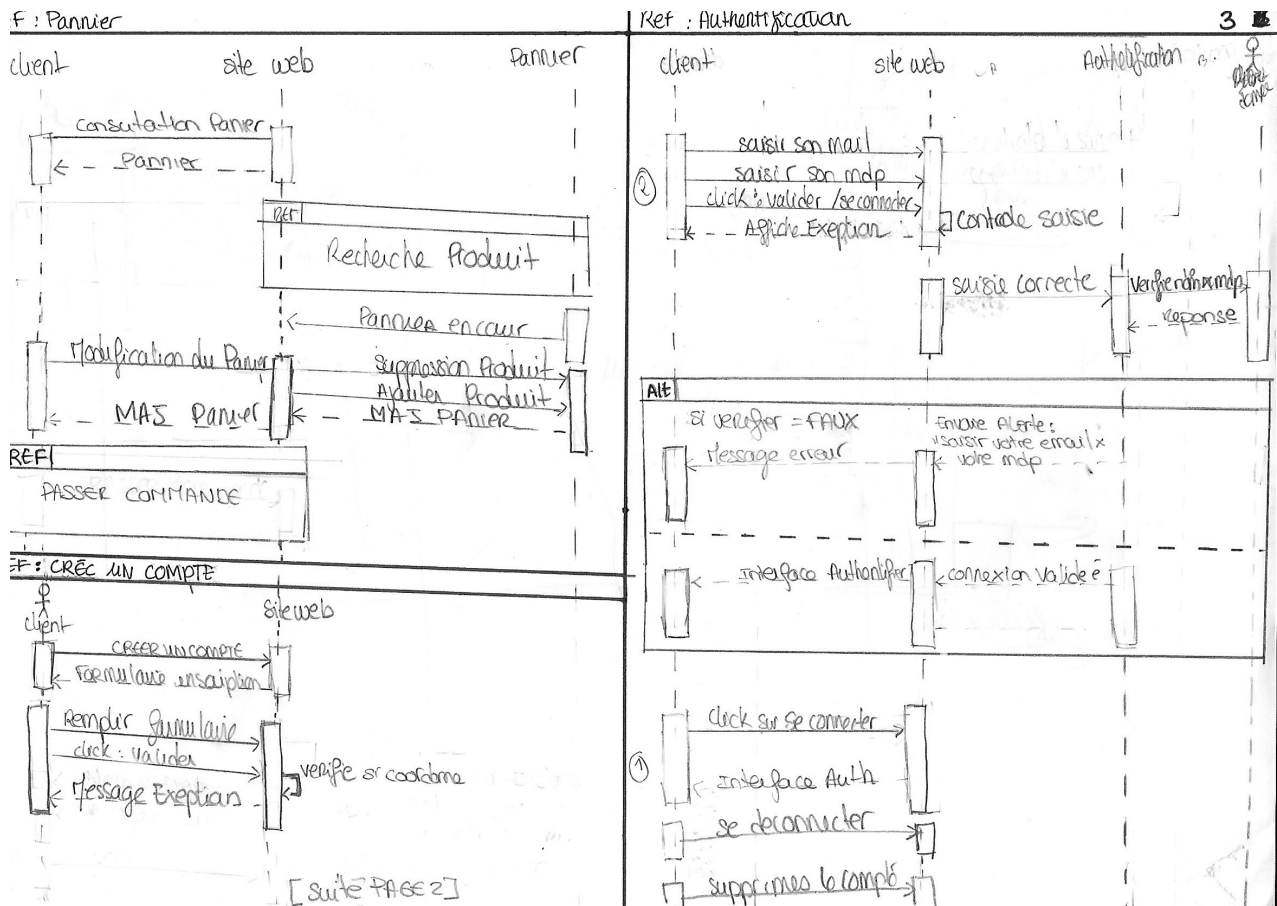 F : Pannier
client
site web
Pannier
consutation Panier
Pannier
Ref
Recherche Produit
Pannier encour
Modification du Panier
Suppression Produit
Ajouter Produit
MAJ Panier
MAJ PANIER
REF
PASSER COMMANDE
EF : CRÉE UN COMPTE
client
site web
CREER UN COMPTE
Formulaire inscription
Remplir formulaire
click : valider
verifie si coordonne
Message Exeption
[suite PAGE 2]
Ref : Authentification
3
client
site web
Authetification
2
saisir son mail
saisir son mdp
click : valider / se connecter
controle saisie
Affiche Exeption
saisie correcte
reponse
Alt
si verifier = FAUX
Envoie Alerte :
saisir votre email x
votre mdp
Message erreur
Interface Authentifier
connexion valideé
1
click sur se connecter
Interface Auth
se deconnecter
supprimes le compte